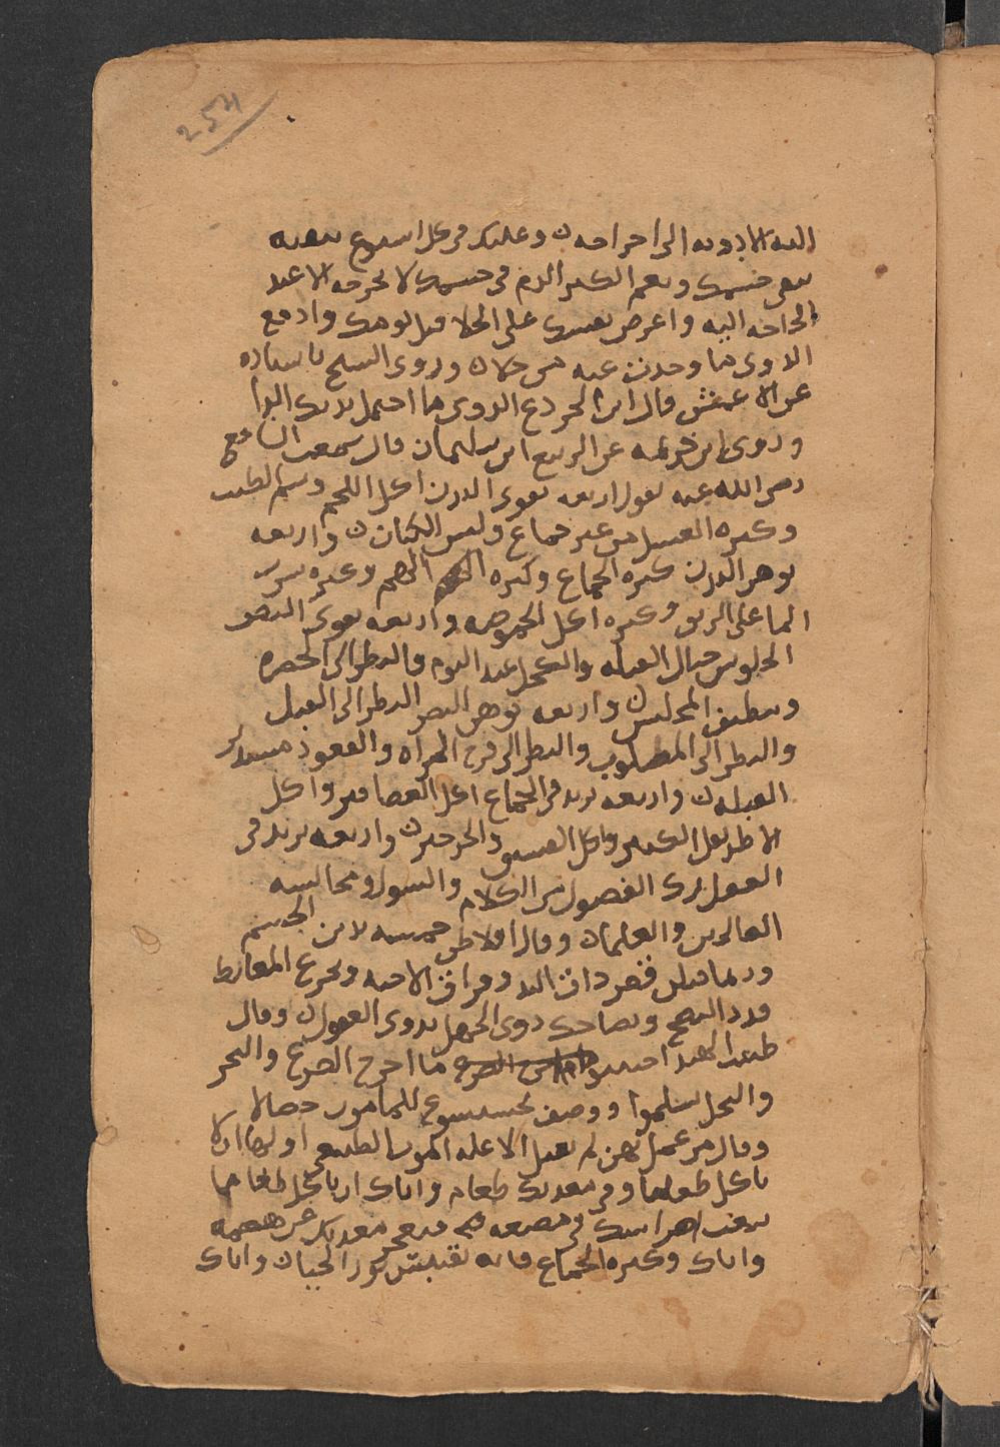 254
اليه الادويه الى اخراجه ن وعليك في كل اسبوع بتقيه
تنقي جسمك ونعم الكنز الدم في جسمك لا تخرجه الا عند
الحاجه اليه واعرض نفسك على الخلا قبل نومك وادفع
الادوى ما وجدت عنه من خلان وروى الشيخ باسناده
عن الاعمش قال ابن الحر دع الدوى ما احتمل بدنك الدا
وروى ابن خزيمه عن الربيع ابن سليمان قال سمعت الشافعي
رضى الله عنه يقول اربعه تقوى البدن اكل اللحم وشم الطيب
وكثره الغسل من غير جماع ولبس الكتان ن واربعه
توهن البدن كثره الجماع وكثره الهم وكثره شرب
الما على الريق وكثره اكل الحموضه واربعه تقوى البصر
الجلوس حيال القبله والكحل عند النوم والنظر الى الخضره
وتنظيف المجلس ن واربعه توهن البصر النظر الى القبل
والنظر الى المصلوب والنظر الى فرج المراه والقعود مستدبر
القبله ن واربعه تزيد في الجماع اكل العصافير واكل
الاطريفل الكبير واكل الفستق والجرجير ن واربعه تزيد في
العقل ترك الفضول من الكلام والسواك ومجالسه
الصالحين والعلما ن وقال افلاطن خمسه تذبن الجسم
وربما قتلن قصر ذات اليد وفراق الاحبه وتجرع المغايظ
ورد النصح وتضاحك ذوى الجهل بذوى العقول ن وقال
طبيب الهند اجتنبوا ما اخرج الضرع والبحر
والنخل تسلموا ووصف بختيشوع للمامون خصالا
وقال من عمل بهن لم يعتل الا عله الموت الطبيعى اولها ان لا
تاكل طعاما وفي معدتك طعام واياك ان تاكل طعاما
يتعب اضراسك في مضغه فتعجز معدتك عن هضمه
واياك وكثره الجماع فانه يقتبس نور الحياه ن واياك